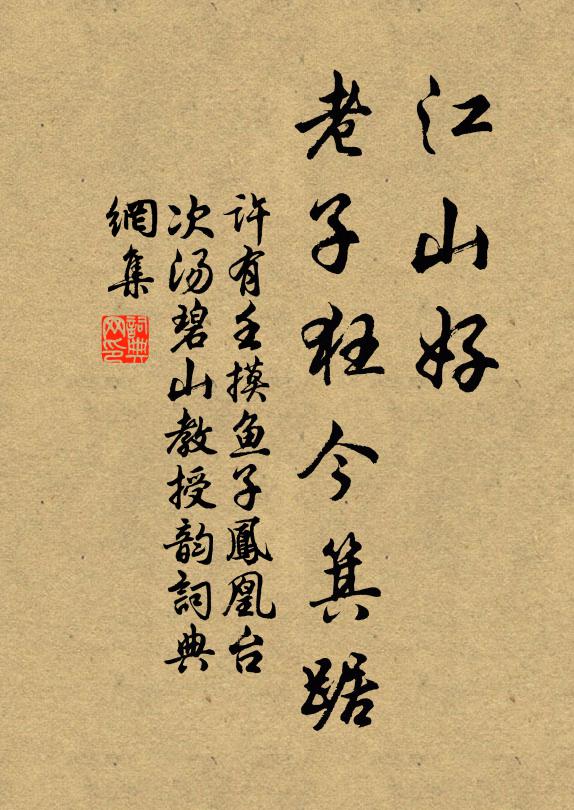 江山好
老子狂今箕踞
许有壬摸鱼子鳳凰台
次汤碧山教授韵詞典
網集
詞典网印